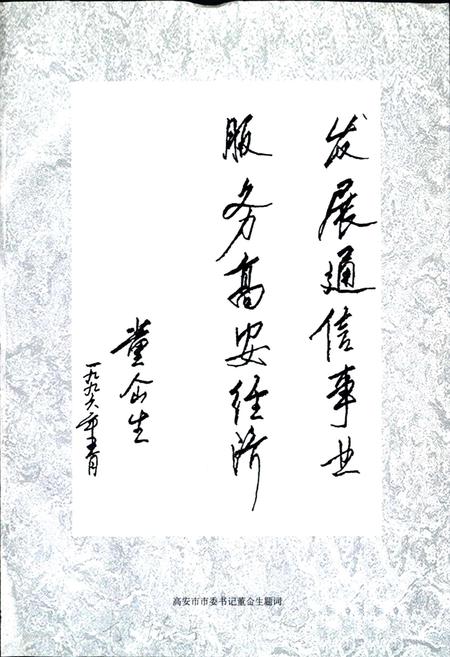 发展通信事业
服务高安经济
董仚生
一九九六年青月
高安市市委书记董仚生题词